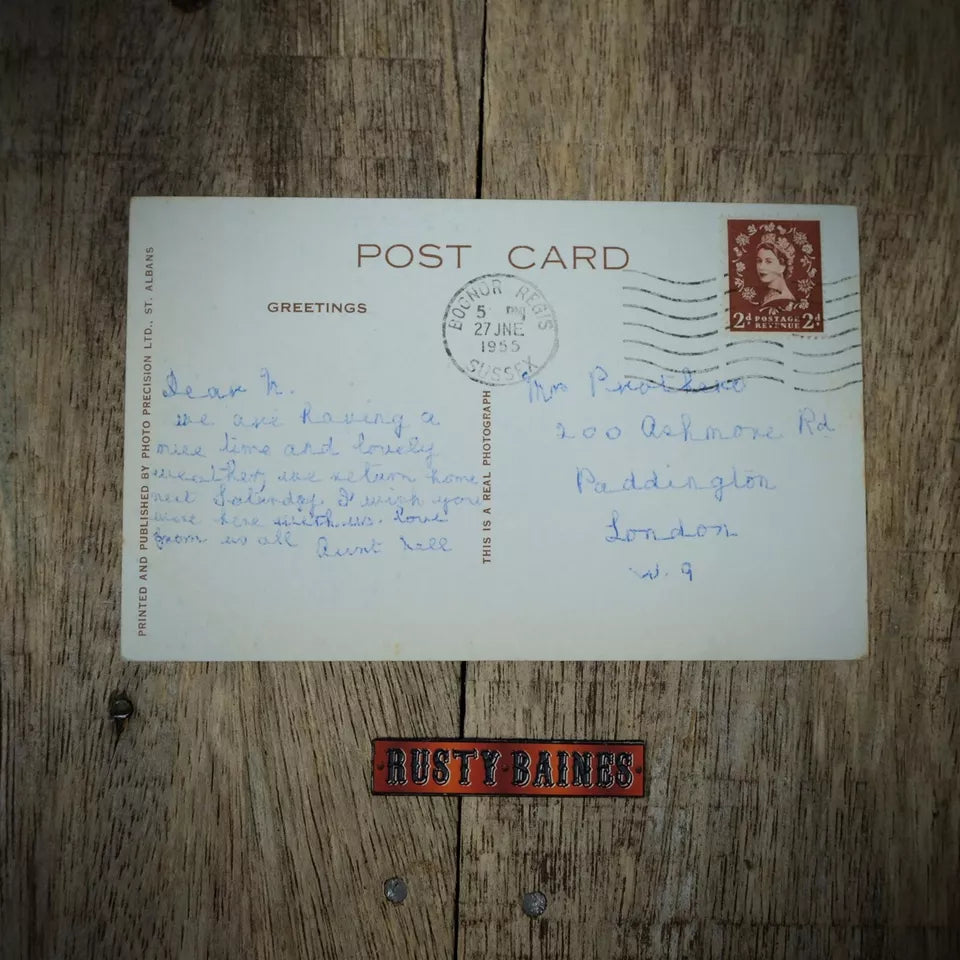 POST CARD
GREETINGS
BOGNOR REGIS
5 PM
27 JNE
1955
SUSSEX
2d POSTAGE 2d
REVENUE
PRINTED AND PUBLISHED BY PHOTO PRECISION LTD., ST. ALBANS
Dear N.
we are having a
nice time and lovely
weather, we return home
next Saturday. I wish you
were here with us. love
from us all Aunt Nell
THIS IS A REAL PHOTOGRAPH
Mrs Prothero
200 Ashmore Rd
Paddington
London
W. 9
RUSTY·BAINES